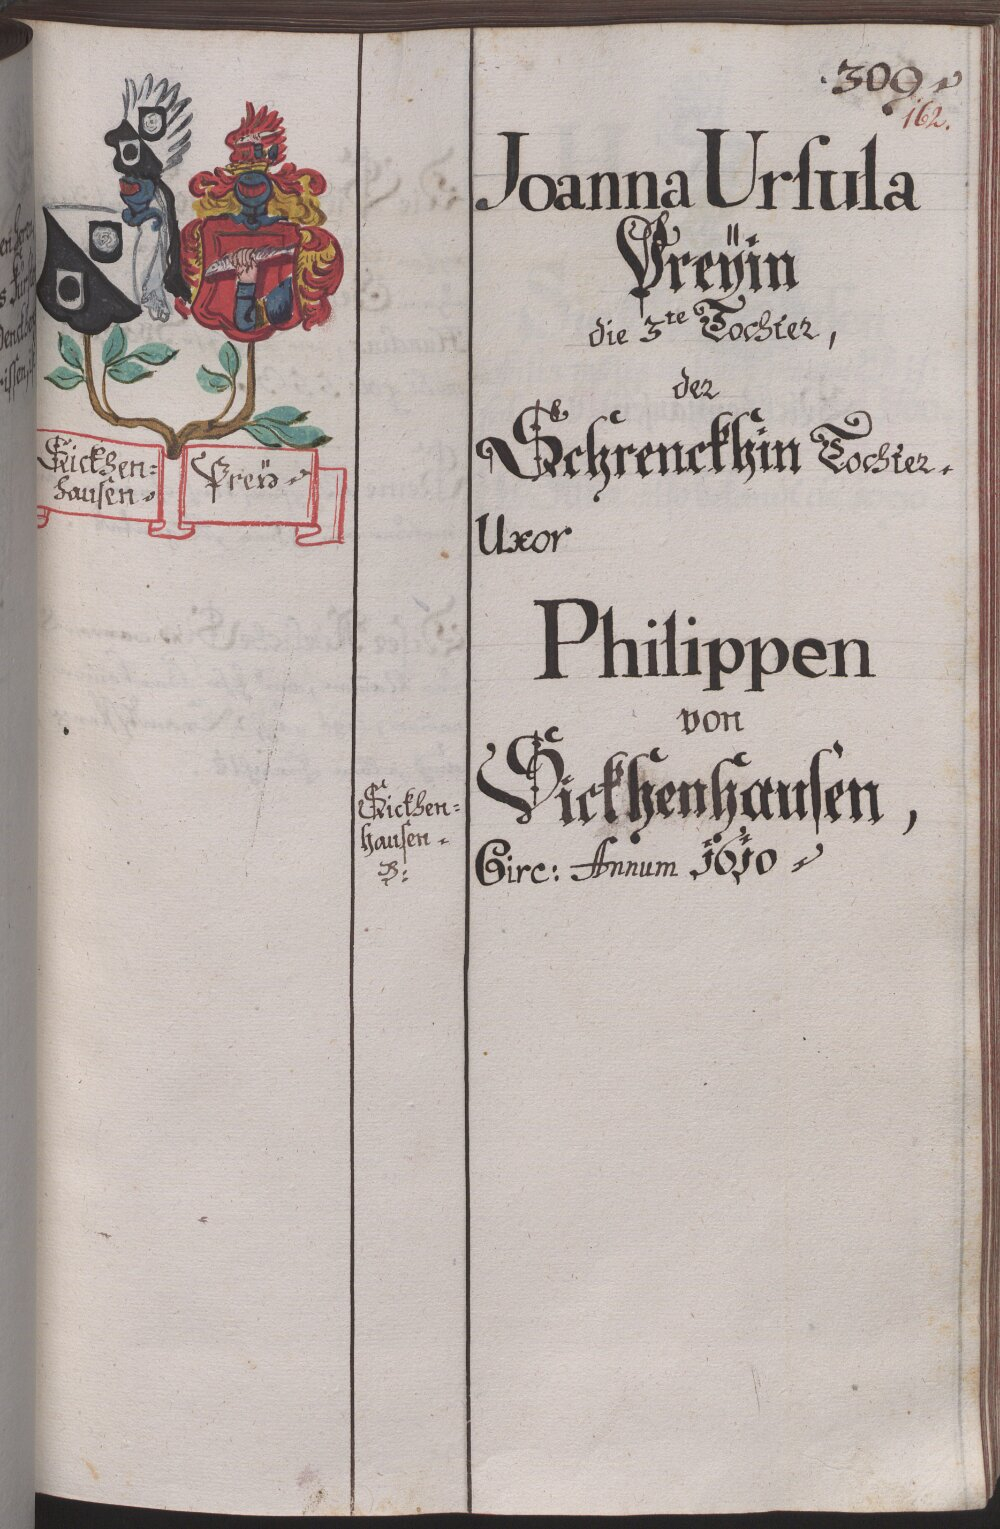 309
162.
Joanna Ursula
Preÿin
die 3te Tochter,
der
Schrenckhin Tochter.
Uxor
Philippen
von
Sickhenhausen,
Circ: Annum 1610
Sickhen=
hausen
Preÿ
Sickhen=
hausen
B: